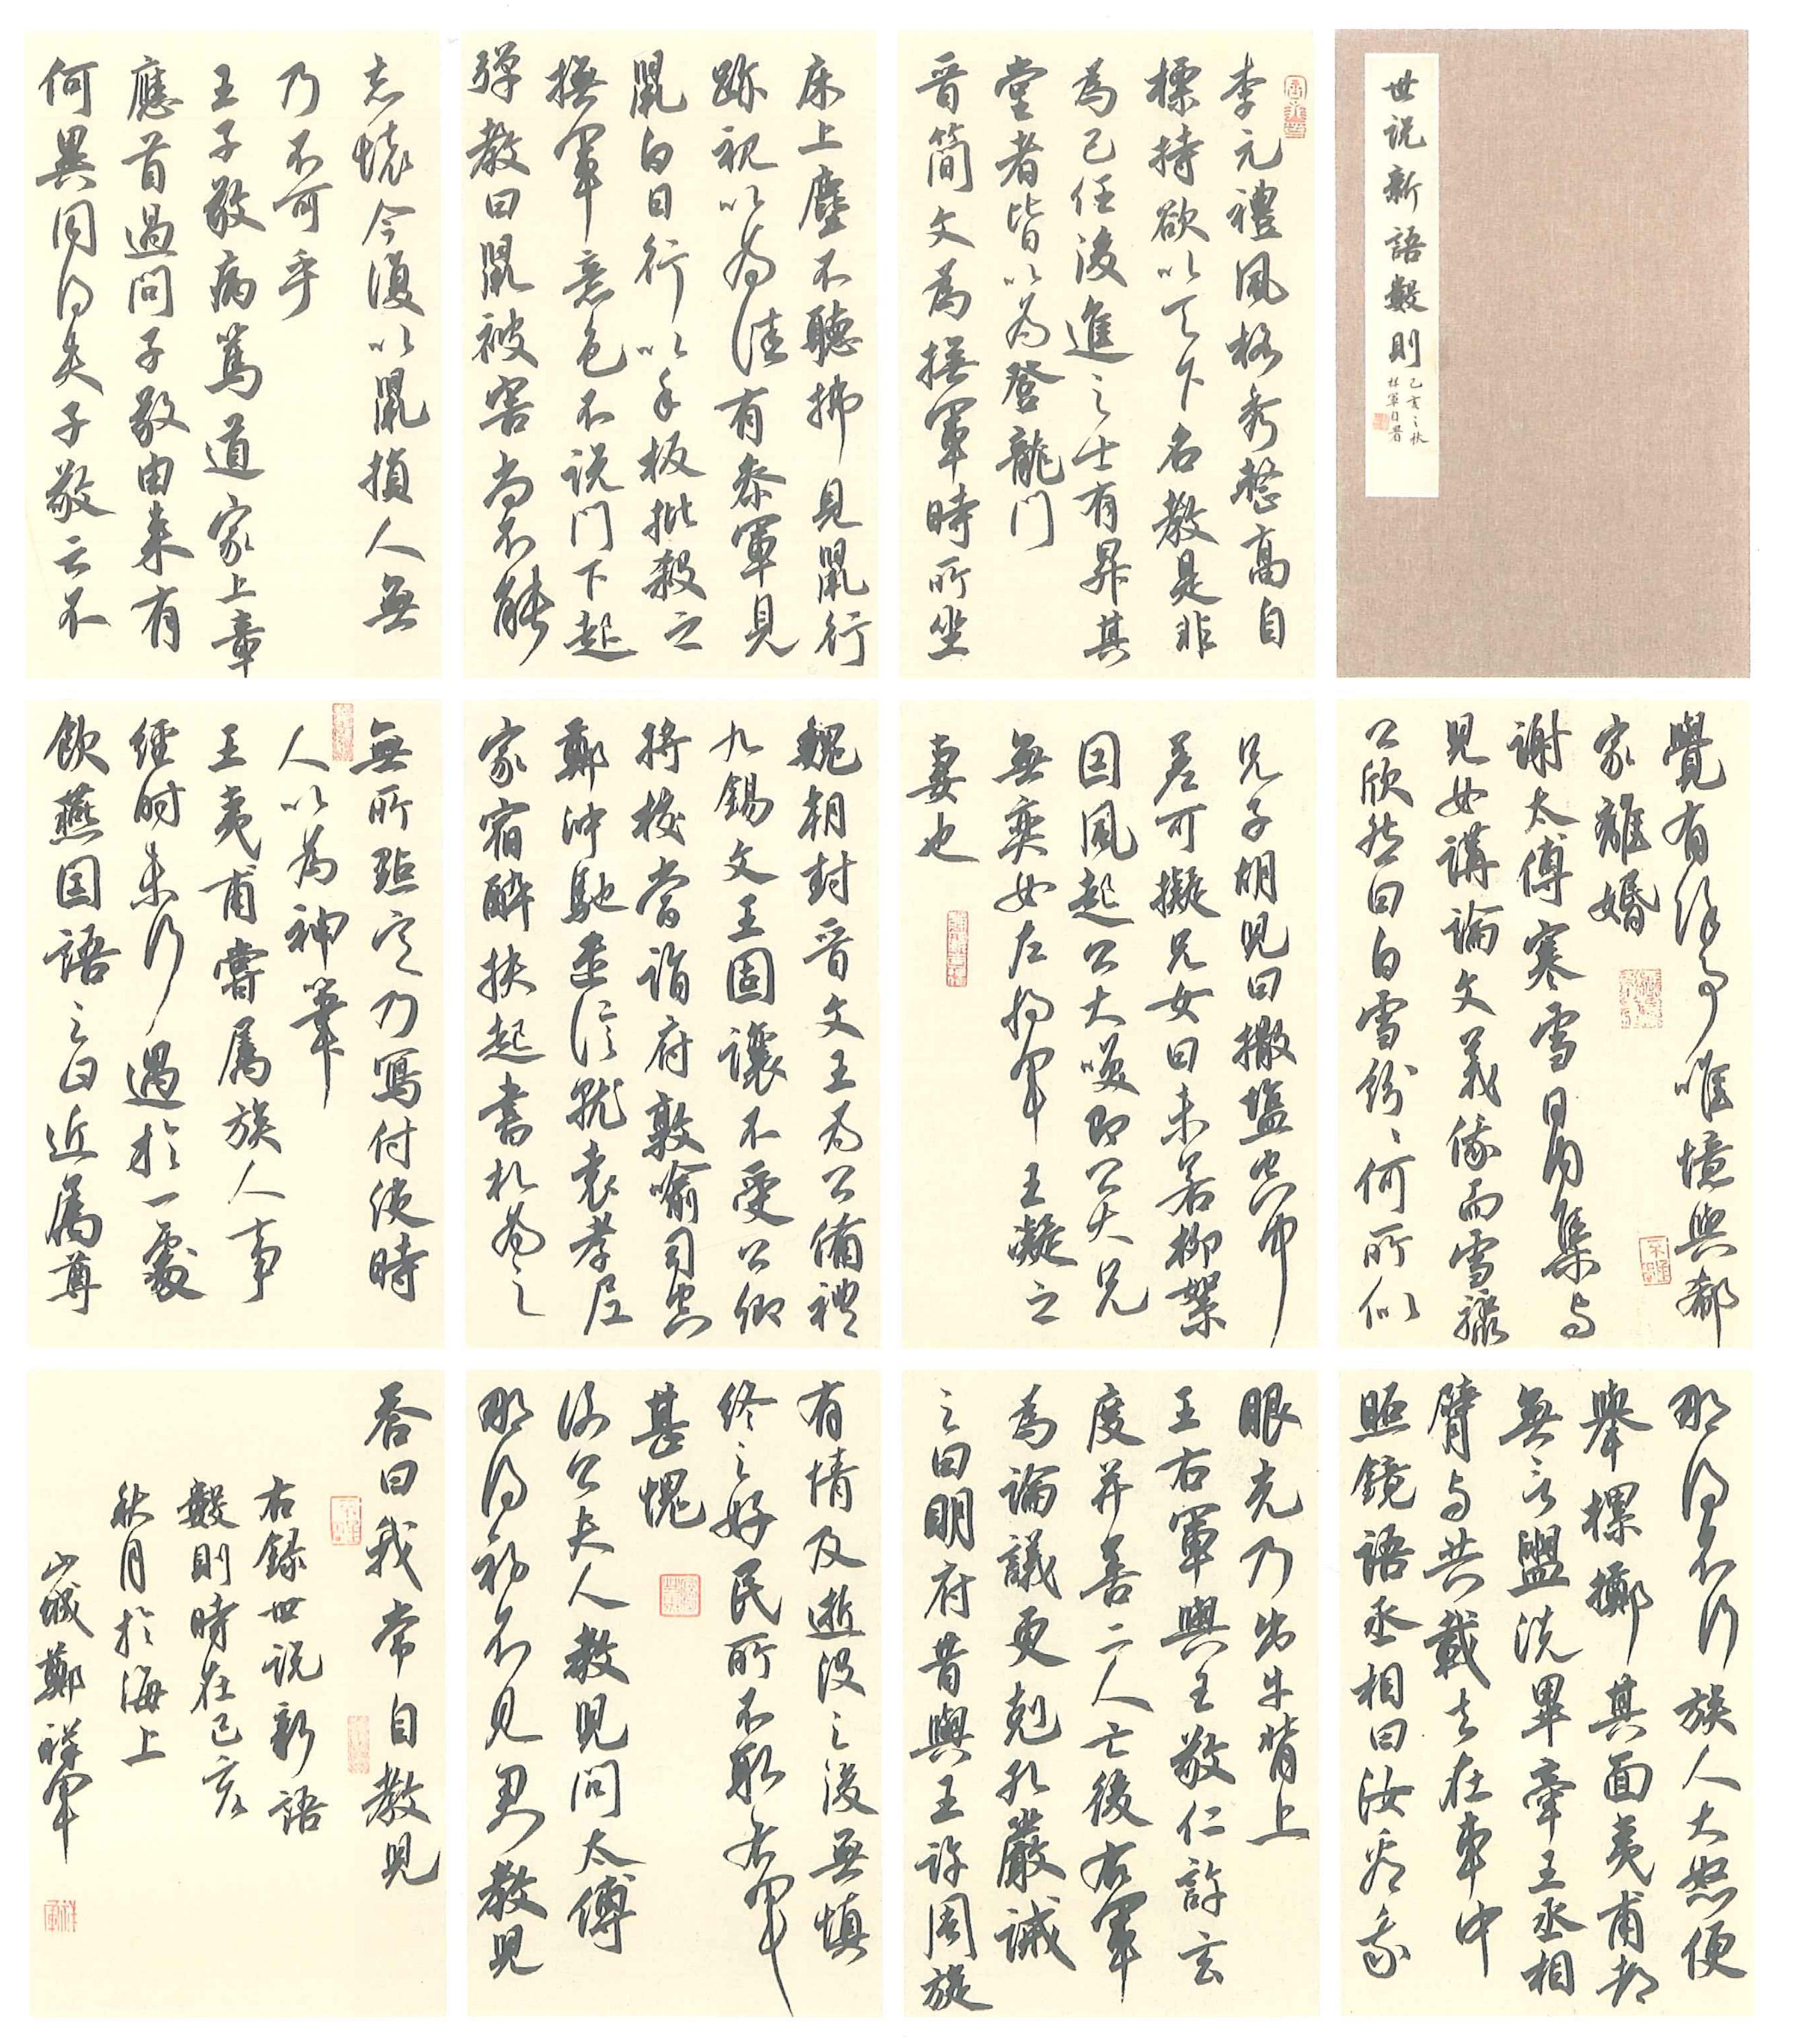 世说新語數則
己亥之秋
祥軍自署
李元禮風格秀整高自
標持欲以天下名教是非
為己任後進之士有昇其
堂者皆以為登龍門
晉簡文為撫軍時所坐
床上塵不聽拂見鼠行
跡視以為佳有参軍見
鼠白日行以手板批殺之
撫軍意色不说門下起
弹教曰鼠被害尚不能
忘懷今復以鼠損人無
乃不可乎
王子敬病篤道家上章
應首過問子敬由来有
何異同得失子敬云不
覺有餘事唯憶與郗
家離婚
谢太傅寒雪日内集与
兒女講論文義俄而雪驟
公欣然曰白雪紛紛何所似
兄子胡兒曰撒塩空中
差可擬兄女曰未若柳絮
因風起公大笑即公大兄
無奕女左将軍王凝之
妻也
魏朝封晉文王為公備禮
九錫文王固讓不受公卿
将校當詣府敦喻司空
鄭沖馳遣信就袁孝尼
家宿醉扶起書札為之
無所點定乃寫付使時
人以為神筆
王夷甫嘗屬族人事
經时未行遇於一處
飲燕因語之曰近屬尊
那得不行族人大怒便
舉樏擲其面夷甫都
無言盥洗畢牽王丞相
臂与共載去在車中
照鏡語丞相曰汝看我
眼光乃出牛背上
王右軍與王敬仁許玄
度并善二人亡後右軍
為論議更剋孔巖诫
之曰明府昔與王許周旋
有情及逝没之後無慎
终之好民所不取右軍
甚愧
谢公夫人教兒問太傅
那得初不見君教兒
答曰我常自教兒
右録世说新語
數則時在己亥
秋月於海上
山城鄭祥軍